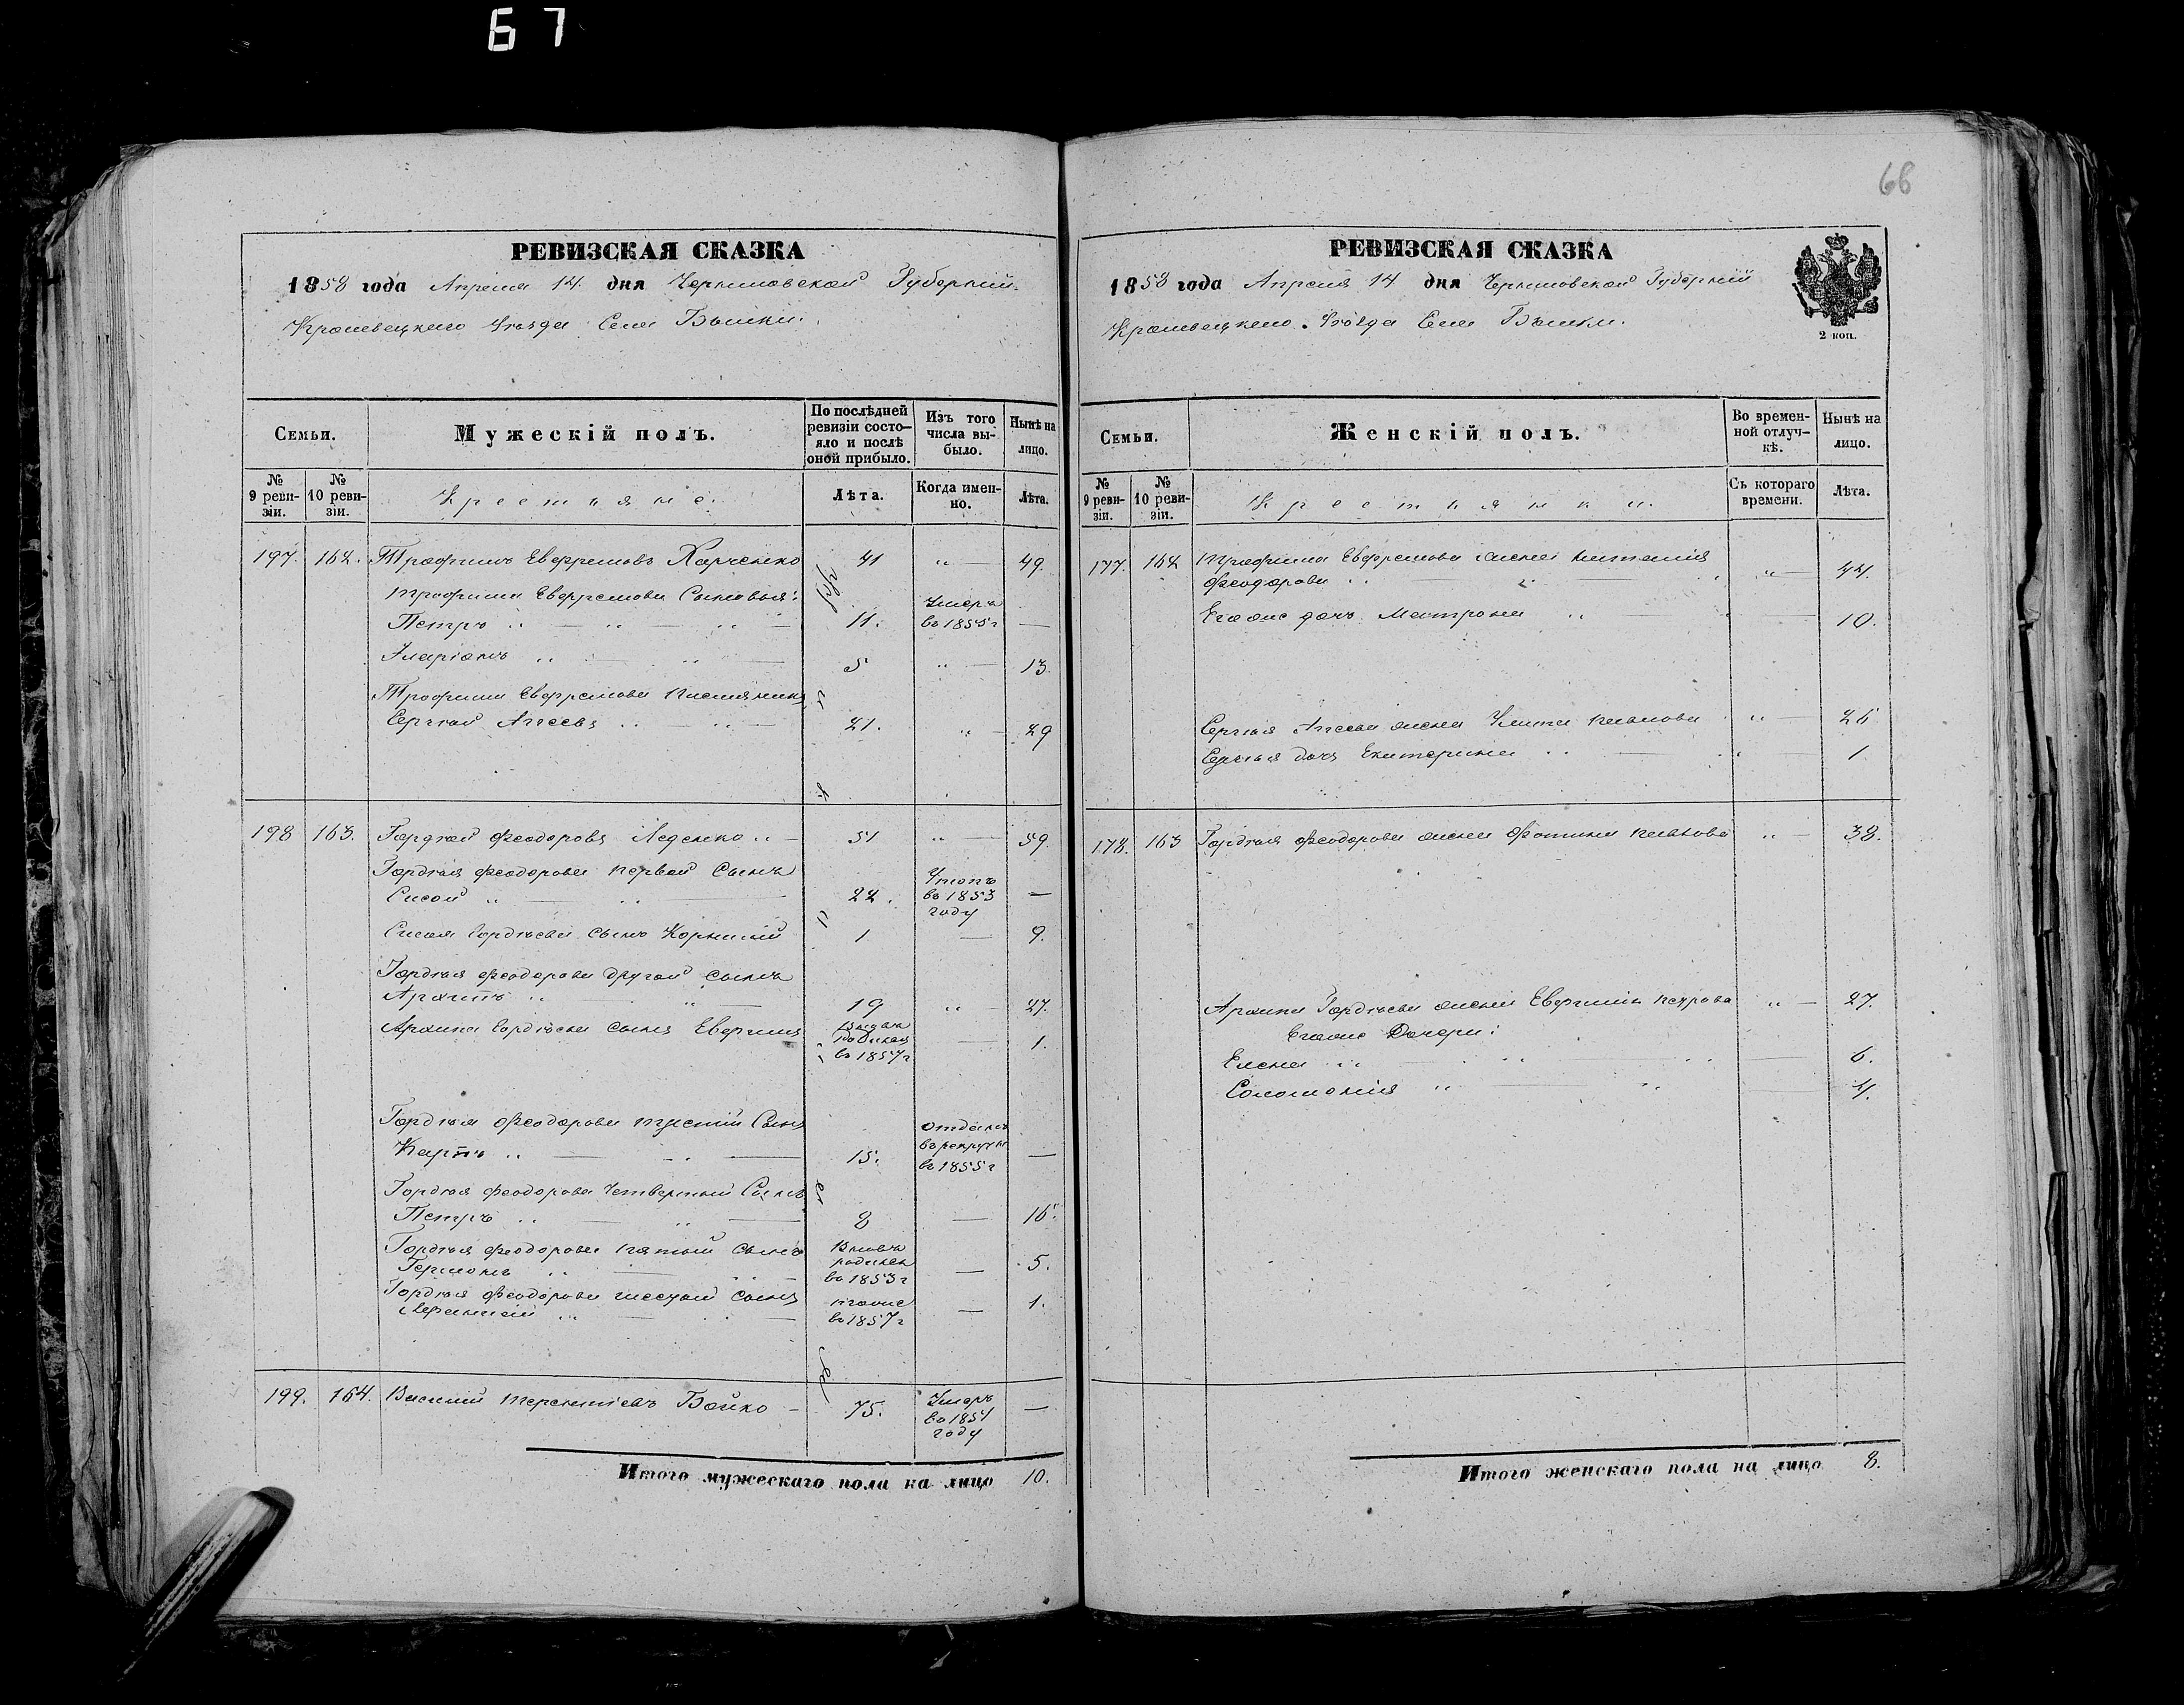 67
66
РЕВИЗСКАЯ СКАЗКА
1858 года Апреля 14. дня Черниговской Губерніи
Кролевецкого Уѣзда Села
Семьи.
Мужескій полъ.
По послѣдней ревизіи состояло и послѣ оной прибыло.
Изъ того числа выбыло.
Нынѣ на лицо.
№ 9 ревизіи.
№ 10 ревизіи.
Крестьяне.
Лѣта.
Когда именно.
Лѣта.
197. 162. Трофимъ Евфремовъ Харченко 41 " — 49.
Трофима Евфремова Сыновья:
Петръ " — 11. Умеръ въ 1855 г —
Иларіонъ " — 5 " — 13.
Трофима Евфремова племянникъ
Сергѣй " — 21. " — 29
198 163. Гордѣй Феодоровъ Леденко " — 51 " — 59.
Гордѣя Феодорова первой Сынъ
Сисой " — 22. въ 1853 году —
Сисоя Гордѣева сынъ Корнилій 1 — 9.
Гордѣя Феодорова другой сынъ
Архипъ " — 19 " — 27.
Архипа Гордѣева сынъ въ 1857 г — 1.
Гордѣя Феодорова третій Сынъ
Карпъ " — 15. отданъ въ рекруты въ 1855 г —
Гордѣя Феодорова Четвертый Сынъ
Петръ " — 8 — 16.
Гордѣя Феодорова пятый сынъ
" — въ 1853 г — 5.
Гордѣя Феодорова шестый сынъ
" — тоже въ 1857 г — 1.
199. 164. Василій Терентіевъ Бойко — 75. Умеръ въ году —
Итого мужескаго пола на лицо 10.
РЕВИЗСКАЯ СКАЗКА
1858 года Апреля 14 дня Черниговской Губерніи
Кролевецкого Уѣзда Села
2 коп.
Семьи.
Женскій полъ.
Во временной отлучкѣ.
Нынѣ на лицо.
№ 9 ревизіи.
№ 10 ревизіи.
Крестьянки.
Съ котораго времени.
Лѣта.
177. 162 Трофима Евфремова жена
Феодорова " — " — 44.
Его же дочь Матрона " — 10.
Сергѣя жена Улита " — 26
Сергѣя дочь Екатерина " — 1
178. 163 Гордѣя Феодорова жена Фотина " — 38.
Архипа Гордѣева жена Петрова " — 27.
Егоже Дочери:
Елена " — 6.
Соломонія " — 4.
Итого женскаго пола на лицо 8.